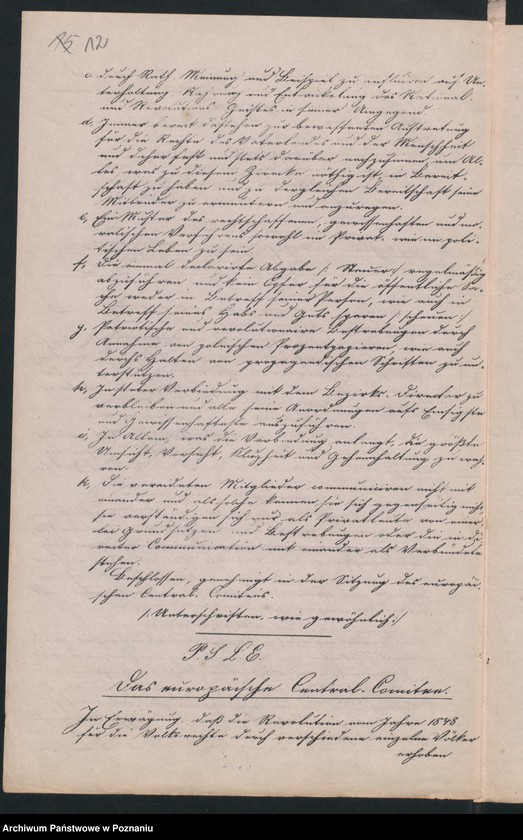 75 12
c. durch Rath Meinung und Beispiel zu influiren auf Un-
terhaltung Nahrung und Entwickelung des National-
und Revolutions Geistes in seiner Umgegend.
d, Immer bereit dastehen zur bewaffneten Auftretung
für die Rechte des Vaterlandes und der Menschheit
und daher fest und stets darüber nachzusinnen, um Al-
les was zu diesem Zwecke nöthig ist, in Bereit-
schaft zu haben und zu dergleichen Bereitschaft seine
Mitbrüder zu ermuntern und anzuregen.
e, Ein Muster des rechtschaffenen, gewissenhaften und mo-
ralischen Verfahrens sowohl im Privat- wie im poli-
tischen Leben zu sein.
f, Die einmal deklarirte Abgabe /: Steuer :/ regelmäßig
abzuführen und kein Opfer für die öffentliche Sa-
che weder in Betreff seiner Person, wie auch in
Betreff seines Hab und Guts sparen /: scheuen :/
g, Patriotische und revolutionaire Bestrebungen durch
Annahme von polnischen Prozentpapieren, wie auch
durchs Halten von propagandischen Schriften zu un-
terstützen.
h, In steter Verbindung mit dem Bezirks-Director zu
verbleiben und alle seine Anordnungen aufs
und Gewissenhafteste auszuführen.
i, In Allem, was die Verbindung anlangt, die größte
Umsicht, Vorsicht, Klugheit und Geheimhaltung zu wah-
ren.
k, Die vereideten Mitglieder communiciren nicht mit
einander und als solche kennen sie sich gegenseitig nicht,
sie verständigen sich nur als Privatleute von einer-
lei Grundsätzen und Bestrebungen oder die in di-
recter Communication mit einander als Verbündete
stehen.
Beschlossen, genehmigt in der Sitzung des europäi-
schen Central-Comitees.
/: Unterschriften, wie gewöhnlich :/
P. S L E.
Das europäische Central-Comitee.
In Erwägung, daß die Revolution vom Jahre 1848
für die Volksrechte durch verschiedene einzelne Völker
erhoben
Archiwum Państwowe w Poznaniu